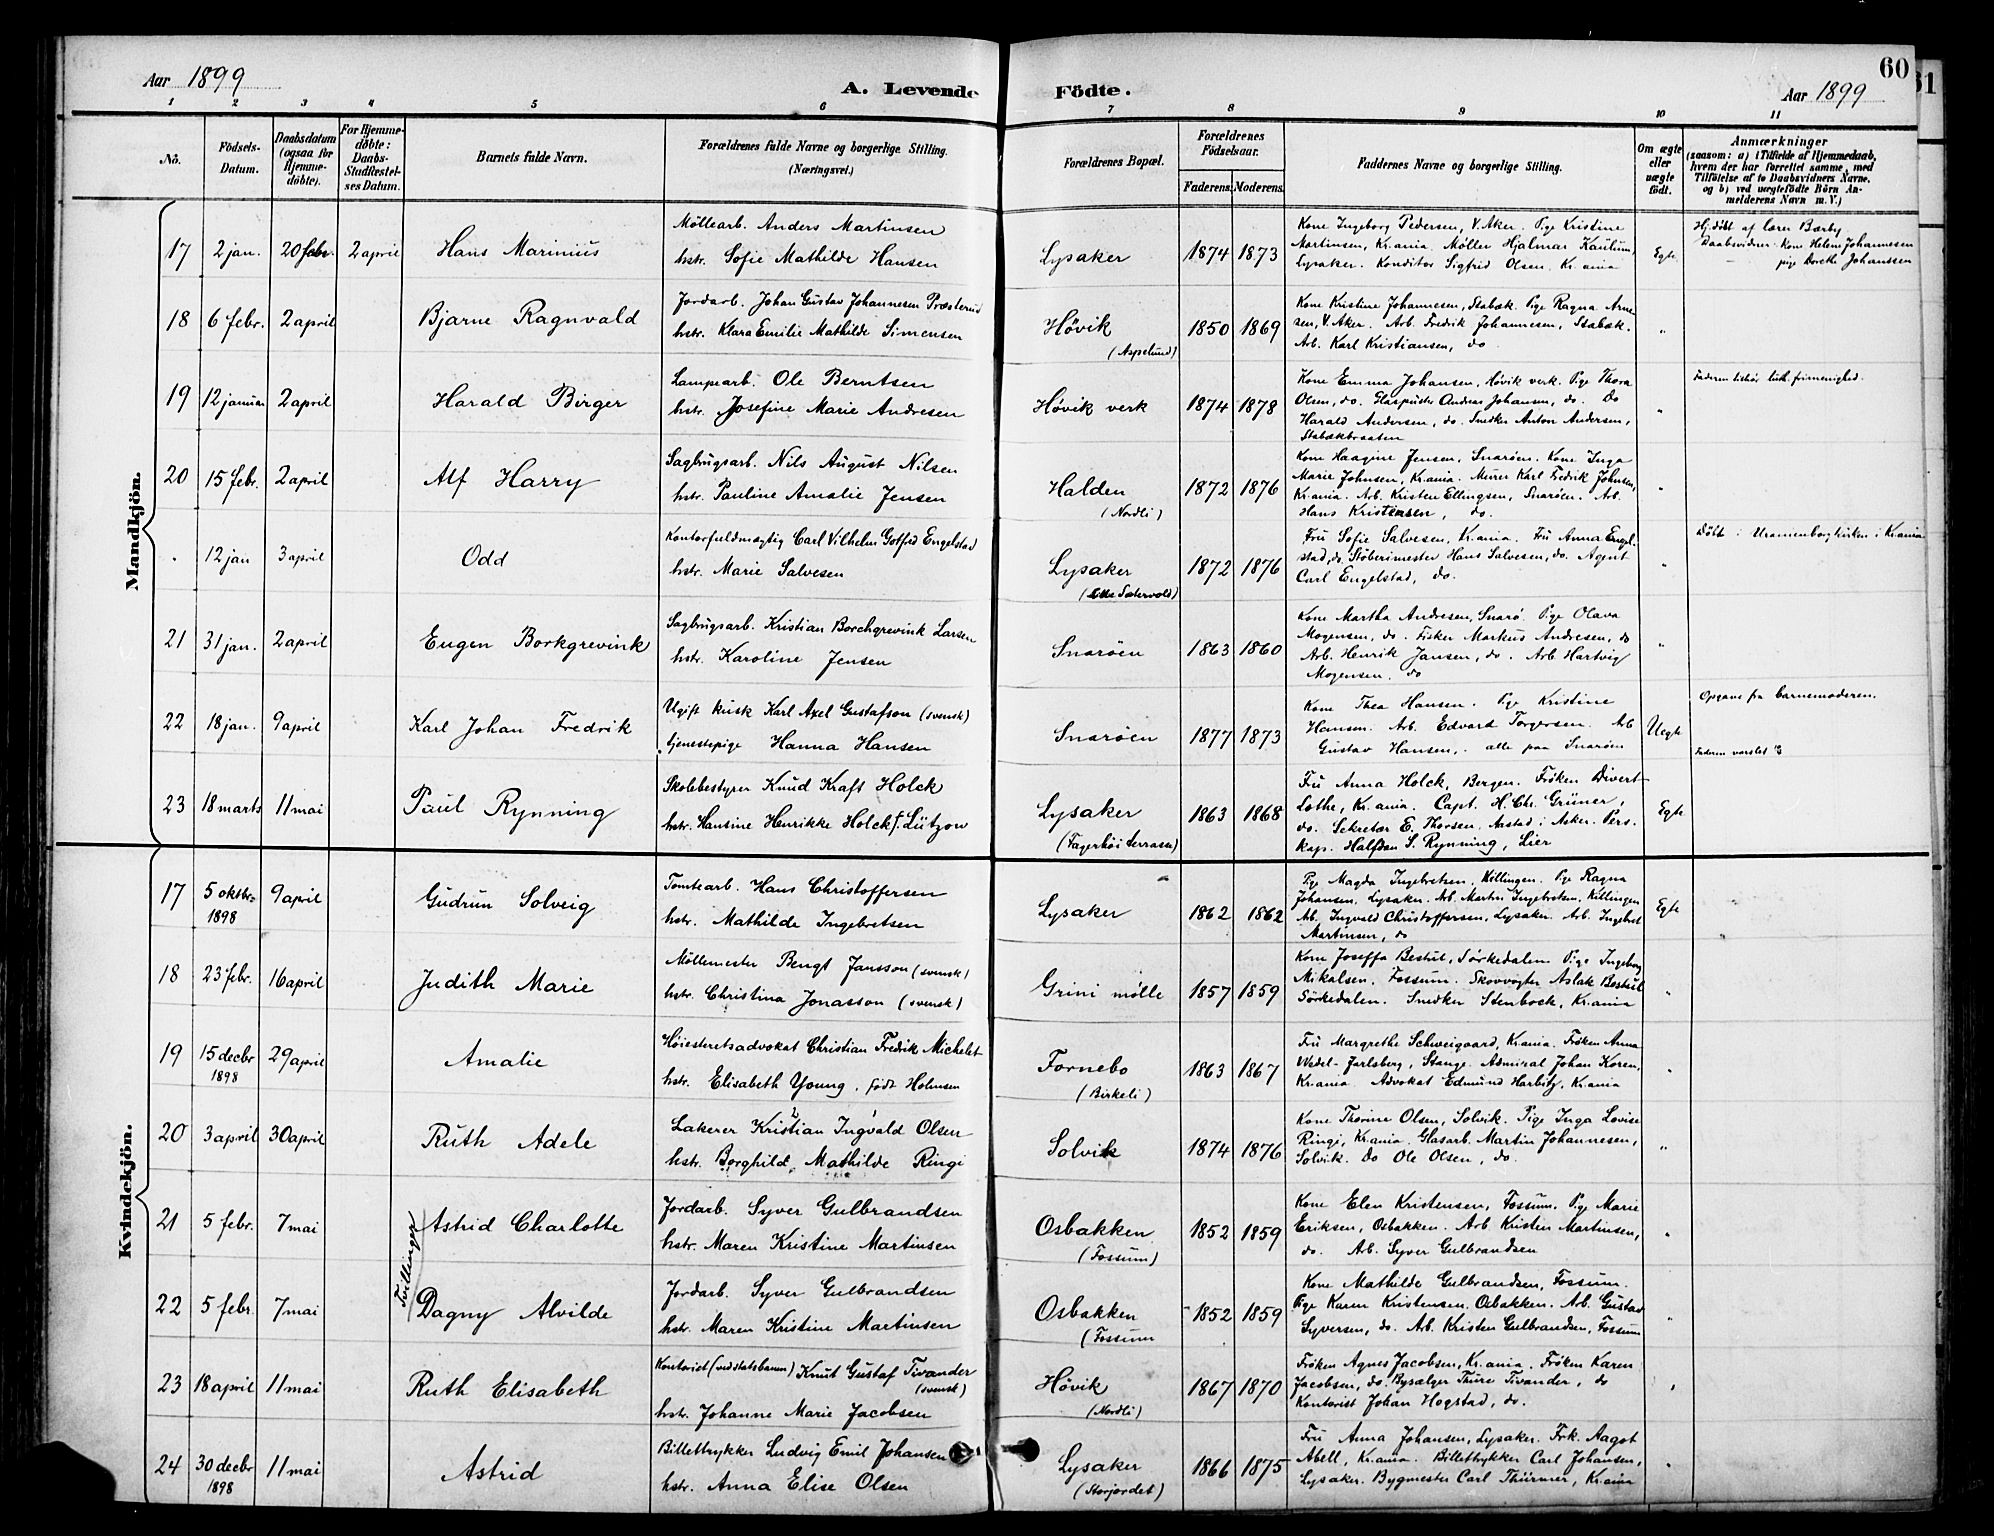 60
Aar 1899
A. Levende Födte.
Aar 1899
1 2 3 4 5 6 7 8 9 10 11
No.
Födsels-Datum.
Daabsdatum (ogsaa for Hjemme-döbte).
For Hjemme-döbte: Daabs-Stadfæstel-ses Datum.
Barnets fulde Navn.
Forældrenes fulde Navne og borgerlige Stilling. (Næringsvei.)
Forældrenes Bopæl.
Forældrenes Födselsaar.
Faderens. Moderens.
Faddernes Navne og borgerlige Stilling.
Om ægte eller uægte födt.
Anmærkninger
(saasom: a) i Tilfælde af Hjemmedaab, hvem der har forrettet samme, med Tilföielse af to Daabsvidners Navne, og b) ved uægtefödte Börn An-melderens Navn m. V.)
Mandkjön.
17 2 jan. 20 febr. 2 april Hans Marinius
Møllearb. Anders Martinsen
hstr. Sofie Mathilde Hansen
Lysaker 1874 1873
Kone Ingeborg Pedersen, V. Aker. Pige Kristine
Martinsen, Kr.ania. Møller Hjalmar Kaulum,
Lysaker. Konditor Sigfrid Olsen. Kr.ania
Egte
Hj.døbt af lærer Bærby
Daabsvidner: Kone Helene Johannessen
pige Dorthe Johanssen
18 6 febr. 2 april Bjarne Ragnvald
Jordarb. Johan Gustav Johannesen Præsterud
hstr. Klara Emilie Mathilde Simensen
Høvik (Aspelund) 1850 1869
Kone Kristine Johannesen, Stabæk. Pige Ragna Arne-
sen, V. Aker. Arb. Fredrik Johannesen, Stabæk.
Arb. Karl Kristiansen, do
"
19 12 januar 2 april Harald Birger
Lampearb. Ole Berntsen
hstr. Josefine Marie Andresen
Høvik verk 1874 1878
Kone Emma Johansen, Høvik verk. Pige Thora
Olsen, do. Glaspuster Andreas Johansen, do. Do
Harald Andersen, do. Snedker Anton Andersen,
Stabækbraaten
"
Faderen tilhør luth. frimenighed.
20 15 febr. 2 april Alf Harry
Sagbrugsarb. Nils August Nilsen
hstr. Pauline Amalie Jensen
Halden (Nordli) 1872 1876
Kone Haagine Jensen, Snarøen. Kone Inga
Marie Johnsen, Kr.ania. Murer Karl Fredrik Johnsen,
Kr.ania. Arb. Kristen Ellingsen, Snarøen. Arb.
Hans Kristensen, do.
"
" 12 jan 3 april Odd
Kontorfuldmægtig Carl Vilhelm Gotfred Engelstad
hstr. Marie Salvesen
Lysaker 1872 1876
Fru Sofie Salvesen, Kr.ania. Fru Anna Engel-
stad, do. Støberimester Hans Salvesen, do. Agent
Carl Engelstad, do.
"
Døbt i Uranienborg kirken i Kr.ania
21 31 jan. 2 april Eugen Borkgrevink
Sagbrugsarb. Kristian Borchgrevink Larsen
hstr. Karoline Jensen
Snarøen 1863 1860
Kone Martha Andresen, Snarø. Pige Olava
Mogensen, do. Fisker Markus Andresen, do
Arb. Henrik Jansen, do. Arb. Hartvig
Mogensen. do
"
22 18 jan. 9 april Karl Johan Fredrik
Ugift kusk Karl Axel Gustafson (svensk)
tjenestepige Hanna Hansen
Snarøen 1877 1873
Kone Thea Hansen. Pige Kristine
Hansen. Arb. Edvard Torgersen. Arb
Gustav Hansen, alle paa Snarøen
Uegte
Opgave fra barnemoderen.
Faderen varslet
23 18 marts 11 mai Paul Rynning
Skolebestyrer Knud Kraft Holck
hstr. Hansine Henrikke Holck f. Lützow
Lysaker (Fagerhøi terrasse) 1863 1868
Fru Anna Holck, Bergen. Frøken Divert-
Lothe, Kr.ania. Capt. H. Chr. Grüner,
do. Sekretær E. Thorsen, Aastad i Asker. Pers.
kap. Halfdan S. Rynning, Lier
Egte
Kvindekjön.
17 5 oktbr. 1898 9 april Gudrun Solveig
Tomtearb. Hans Christoffersen
hstr. Mathilde Ingebretsen
Lysaker 1862 1862
Pige Magda Ingebretsen, Killingen. Pige Ragna
Johansen, Lysaker. Arb. Martin Ingebretsen, Killingen
Arb. Ingvald Christoffersen, Lysaker. Arb. Ingebret
Martinsen, do
Egte
18 23 febr. 16 april Judith Marie
Møllemester Bengt Jansson (svensk)
hstr. Christina Jonasson (svensk)
Grini mølle 1857 1859
Kone Joseffa Bestul, Sørkedalen. Pige Ingeborg
Mikalsen, Fossum. Skovvogter Aslak Bestul
Sørkedalen. Snedker Stenbock, Kr.ania
"
19 15 decbr 1898 29 april Amalie
Høiesteretsadvokat Christian Fredrik Michelet
hstr. Elisabeth Young, født Holmsen
Fornebo (Birkeli) 1863 1867
Fru Margrethe Schweigaard, Kr.ania. Frøken Anna
Wedel-Jarlsberg, Stange. Admiral Johan Koren,
Kr.ania. Advokat Edmund Harbitz, Kr.ania
"
20 3 april 30 april Ruth Adele
Lakerer Kristian Ingvald Olsen
hstr. Borghild Mathilde Ringi
Solvik 1874 1876
Kone Thorine Olsen, Solvik. Pige Inga Lovise
Ringi, Kr.ania. Glasarb. Martin Johannesen,
Solvik. Do Ole Olsen, do.
"
Tvillinger
21 5 febr. 7 mai Astrid Charlotte
Jordarb. Syver Gulbrandsen
hstr. Maren Kristine Martinsen
Osbakken (Fossum) 1852 1859
Kone Elen Kristensen, Fossum. Pige Marie
Eriksen, Osbakken. Arb Kristen Martinsen,
do. Arb. Syver Gulbrandsen
"
22 5 febr. 7 mai Dagny Alvilde
Jordarb. Syver Gulbrandsen
hstr. Maren Kristine Martinsen
Osbakken (Fossum 1852 1859
Kone Mathilde Gulbrandsen, Fossum.
Pige Karen Kristensen. Osbakken. Arb. Gustav
Syversen, do. Arb. Kristen Gulbrandsen, Fossum
"
23 18 april 11 mai Ruth Elisabeth
Kontorist (ved statsbanen) Knut Gustaf Tivander (svensk)
hstr. Johanne Marie Jacobsen
Høvik (Nordli) 1867 1870
Frøken Agnes Jacobsen, Kr.ania. Frøken Karen
Jacobsen, do. Bysælger Thure Tivander, do
Kontorist Johan Hogstad, do.
"
24 30 decbr 1898 11 mai Astrid
Billettrykker Ludvig Emil Johansen
hstr. Anna Elise Olsen
Lysaker (Storjordet) 1866 1875
Fru Anna Johansen, Lysaker. Frk. Aagot
Abell, Kr.ania. Billettrykker Carl Johansen,
Lysaker. Bygmester Carl Thürmer, Kr.ania
"